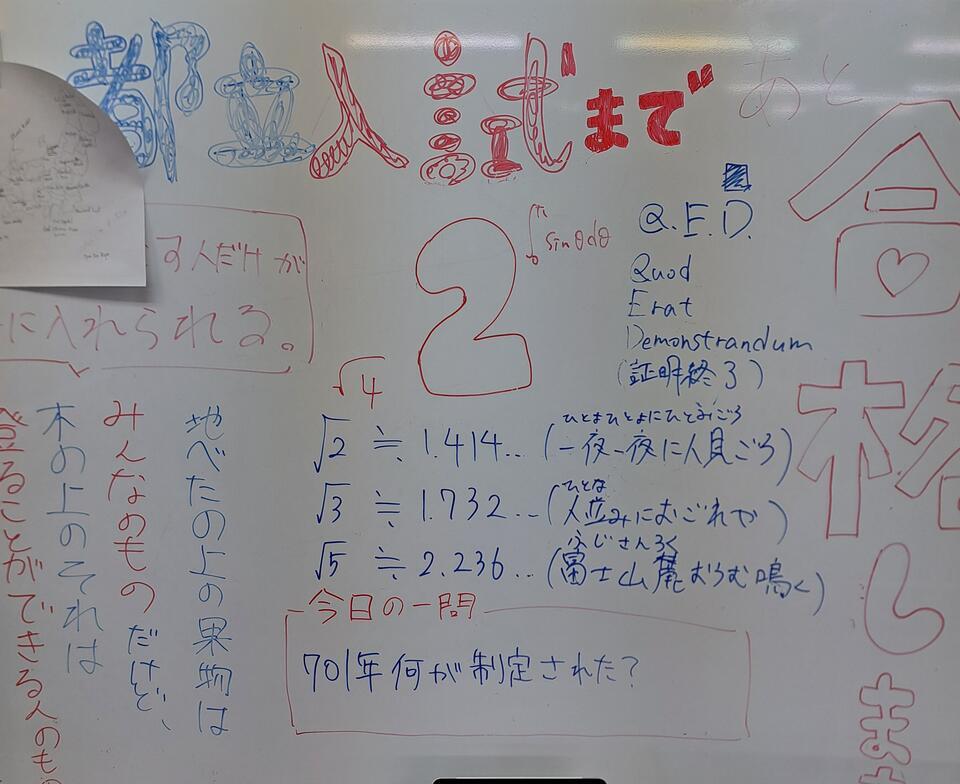 都立入試まで
あと
2
∫₀^π sinθdθ
√4
Q.E.D.
Quod
Erat
Demonstrandum
(証明終了)
す人だけが
に入れられる。
ひとよひとよにひとみごろ
√2 ≒ 1.414‥(一夜一夜に人見ごろ)
ひとな
√3 ≒ 1.732‥(人並みにおごれや)
ふじさんろく
√5 ≒ 2.236‥(富士山麓おうむ鳴く)
今日の一問
701年何が制定された?
地べたの上の果物は
みんなのものだけど、
木の上のそれは
登ることができる人のもの
合格しま